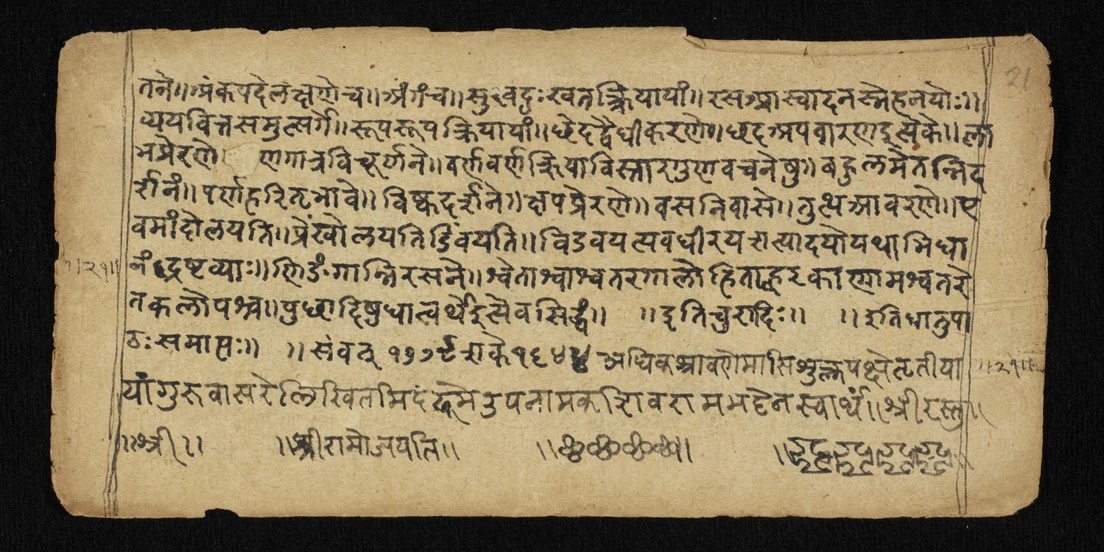 तने॥अंकपदेलक्षणेच॥अंगंच॥सुखदुःखतत्क्रियायां॥रसआस्वादनस्नेहनयोः॥
व्ययवित्तसमुत्सर्गे॥रूपरूपक्रियायां॥छेदद्वैधीकरणे॥छदअपवारणइत्येके॥ला
भप्रेरणे॥ व्रणगात्रविचूर्णने॥वर्णवर्णक्रियाविस्तारगुणवचनेषु॥बहुलमेतन्निद
र्शनं॥पर्णहरितभावे॥विष्कदर्शने॥क्षपप्रेरणे॥वसनिवासे॥तुत्थआवरणे॥ए
वमांदोलयति॥प्रेंखोलयतिडिंवयति॥विडवयत्यवधीरयत्यादयोयथाभिधा
नंद्रष्टव्याः॥णिङंगान्निरसने॥श्वेताश्वाश्वतरगालोहिताह्वरकाणामश्वतरे
तकलोपश्च॥पुछादिषुधात्वर्थेइत्येवसिद्धं॥ ॥इतिचुरादिः॥ ॥इतिधातुपा
ठःसमाप्तः॥ ॥संवत् १७७९शके१६४४अधिकश्रावणेमासिशुक्लपक्षेतृतीया
यांगुरुवासरेलिखितमिदं उपनामक भट्टेनस्वार्थं॥श्रीरस्तु॥
॥श्री॥ ॥श्रीरामोजयति॥ ॥छ॥छ॥छ॥छ॥
॥२१॥
॥२१॥
21